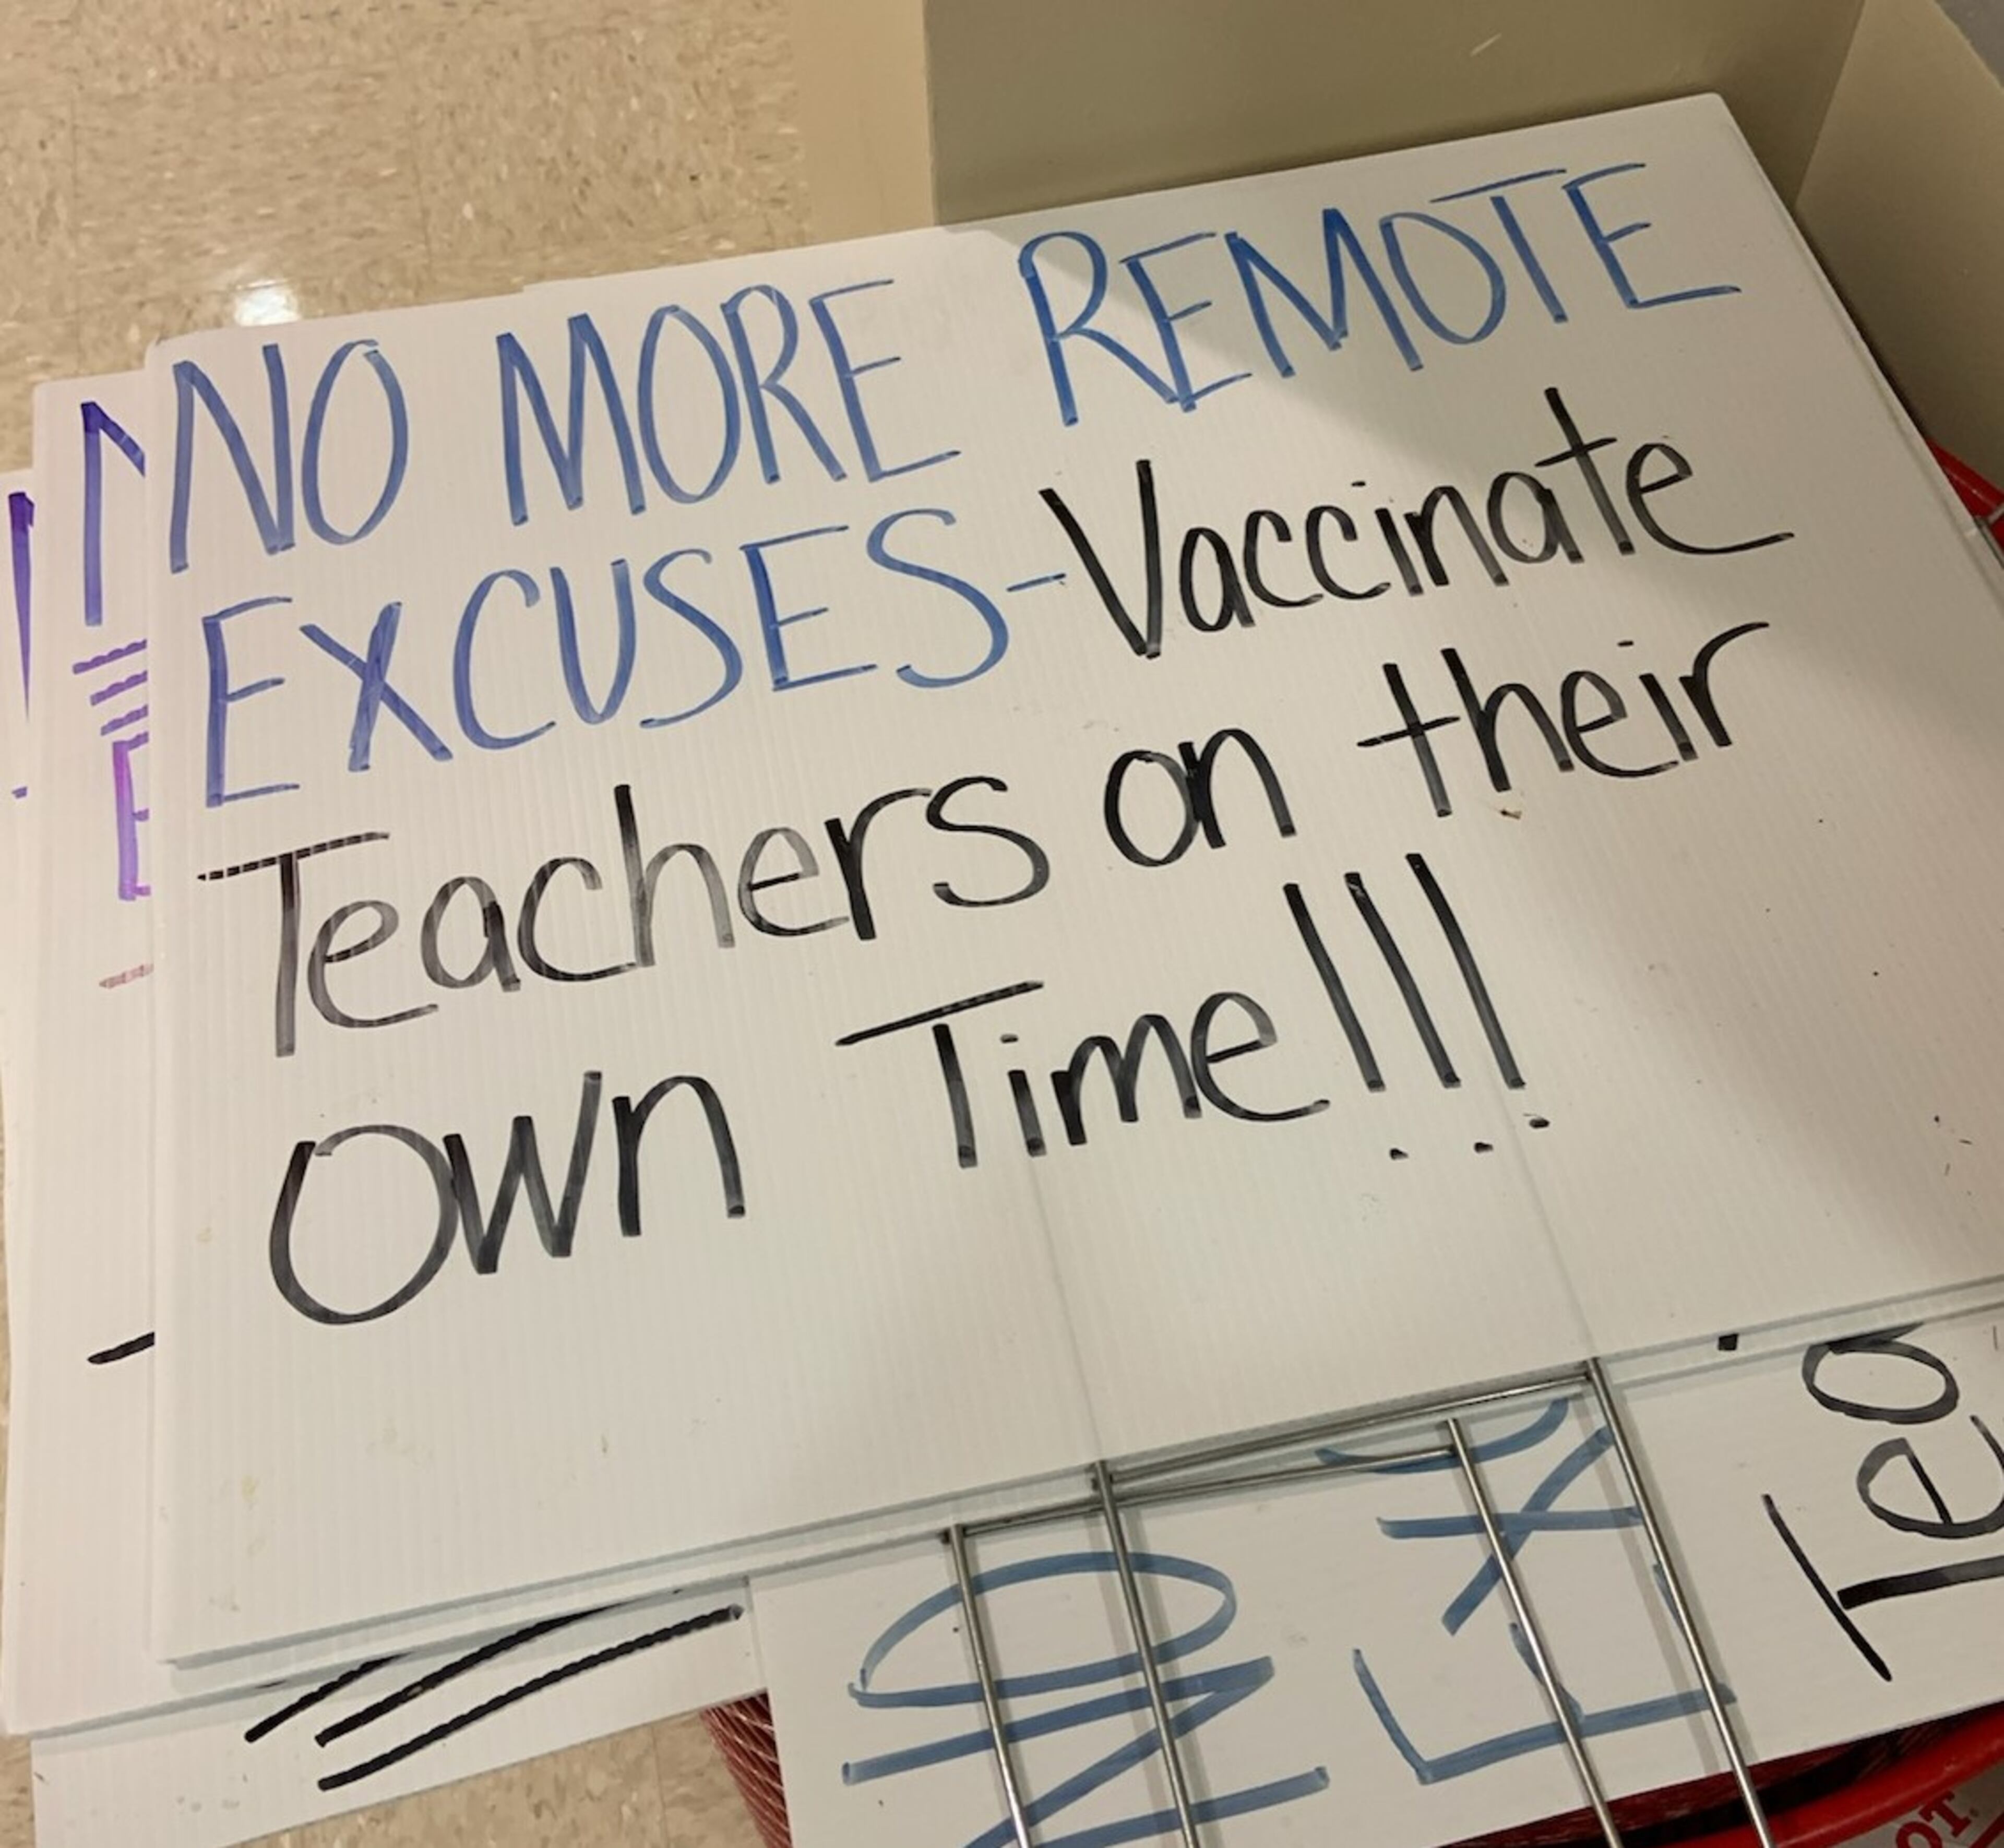 NO MORE REMOTE
EXCUSES-Vaccinate
Teachers on their
Own Time!!!